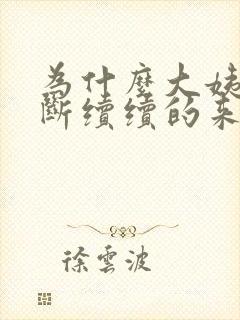 為什麼大姨
斷續續的來
徐雲波